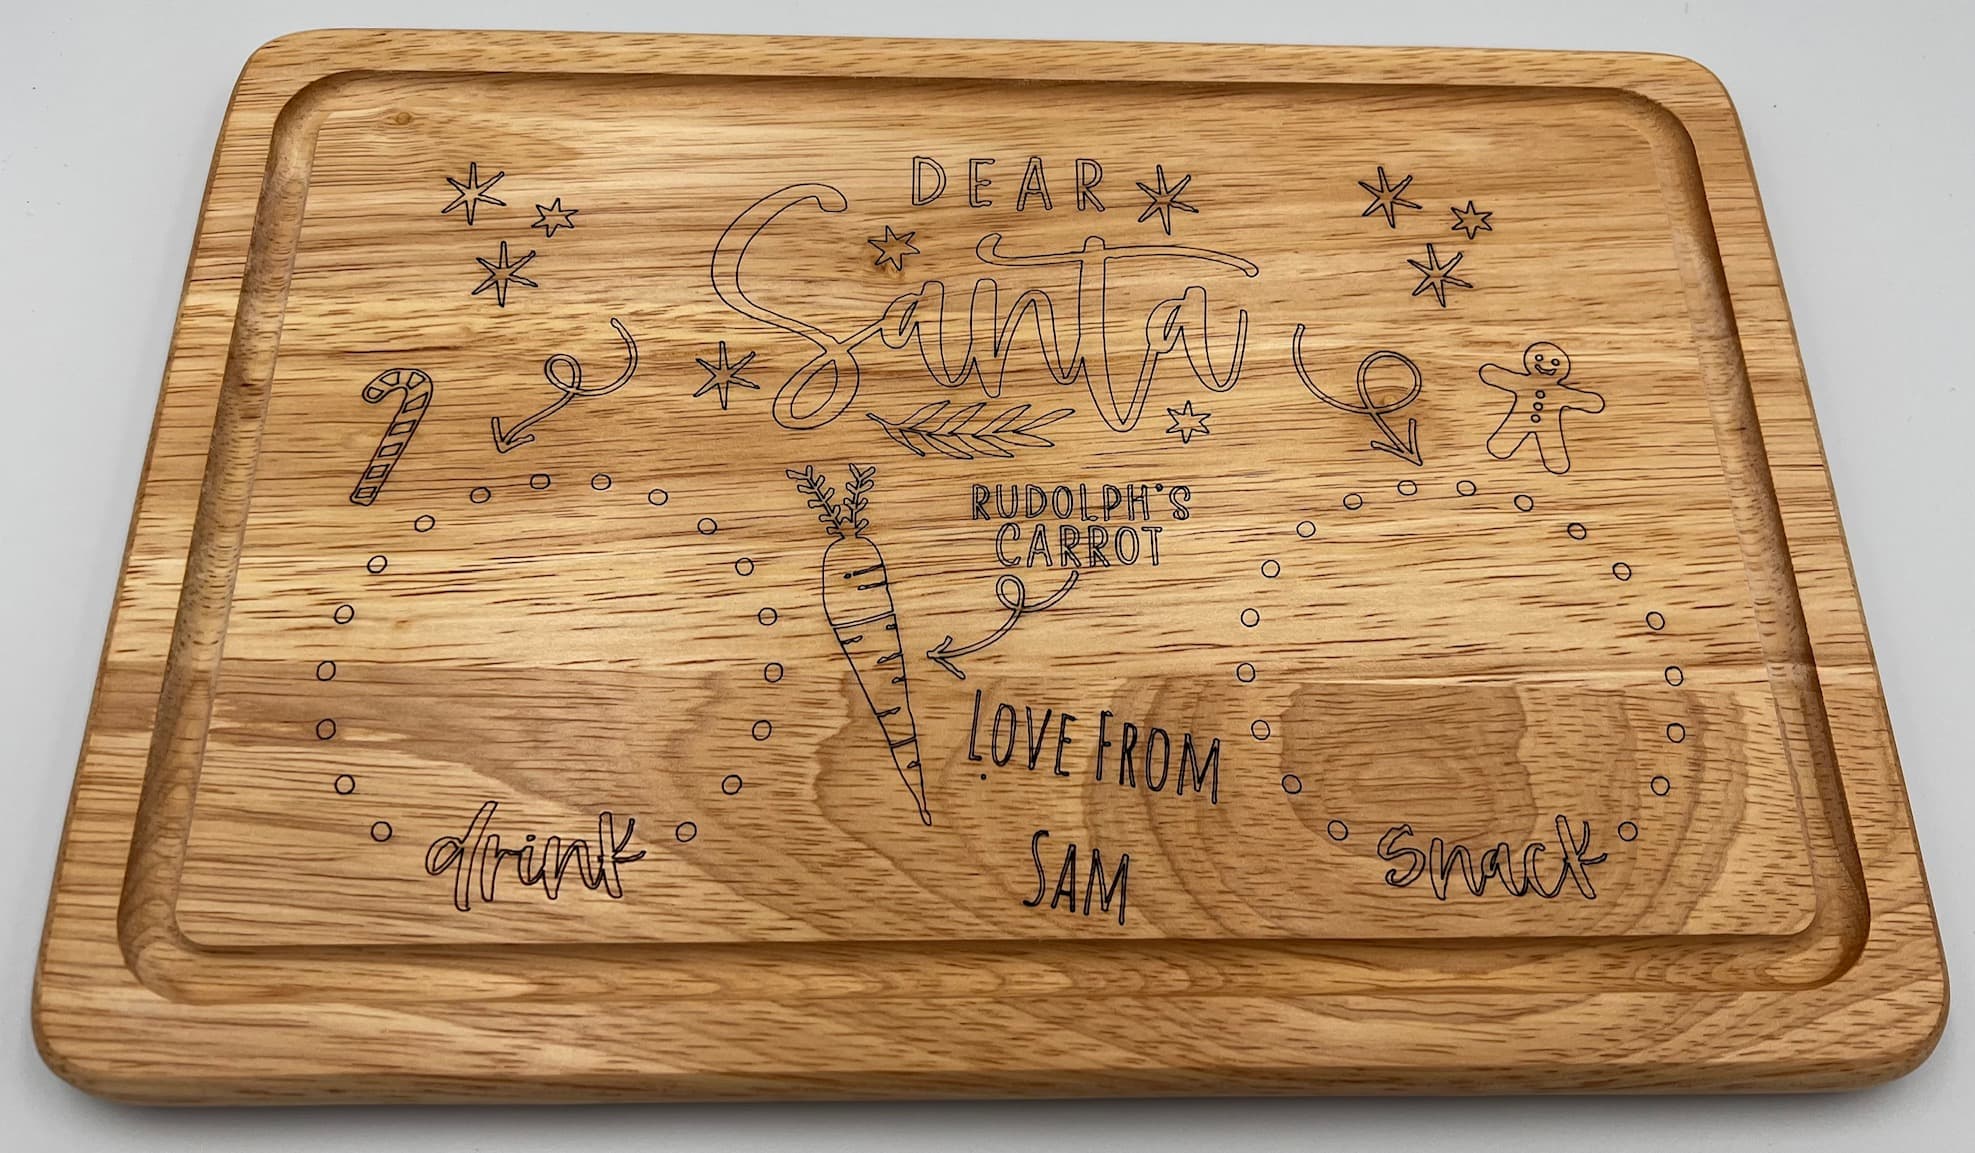 DEAR
Santa
RUDOLPH'S
CARROT
LOVE FROM
SAM
drink
snack